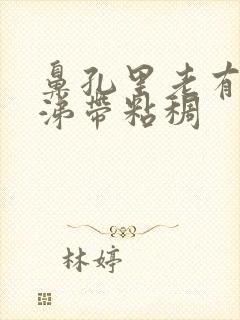 鼻孔里老有
涕带粘稠
林婷